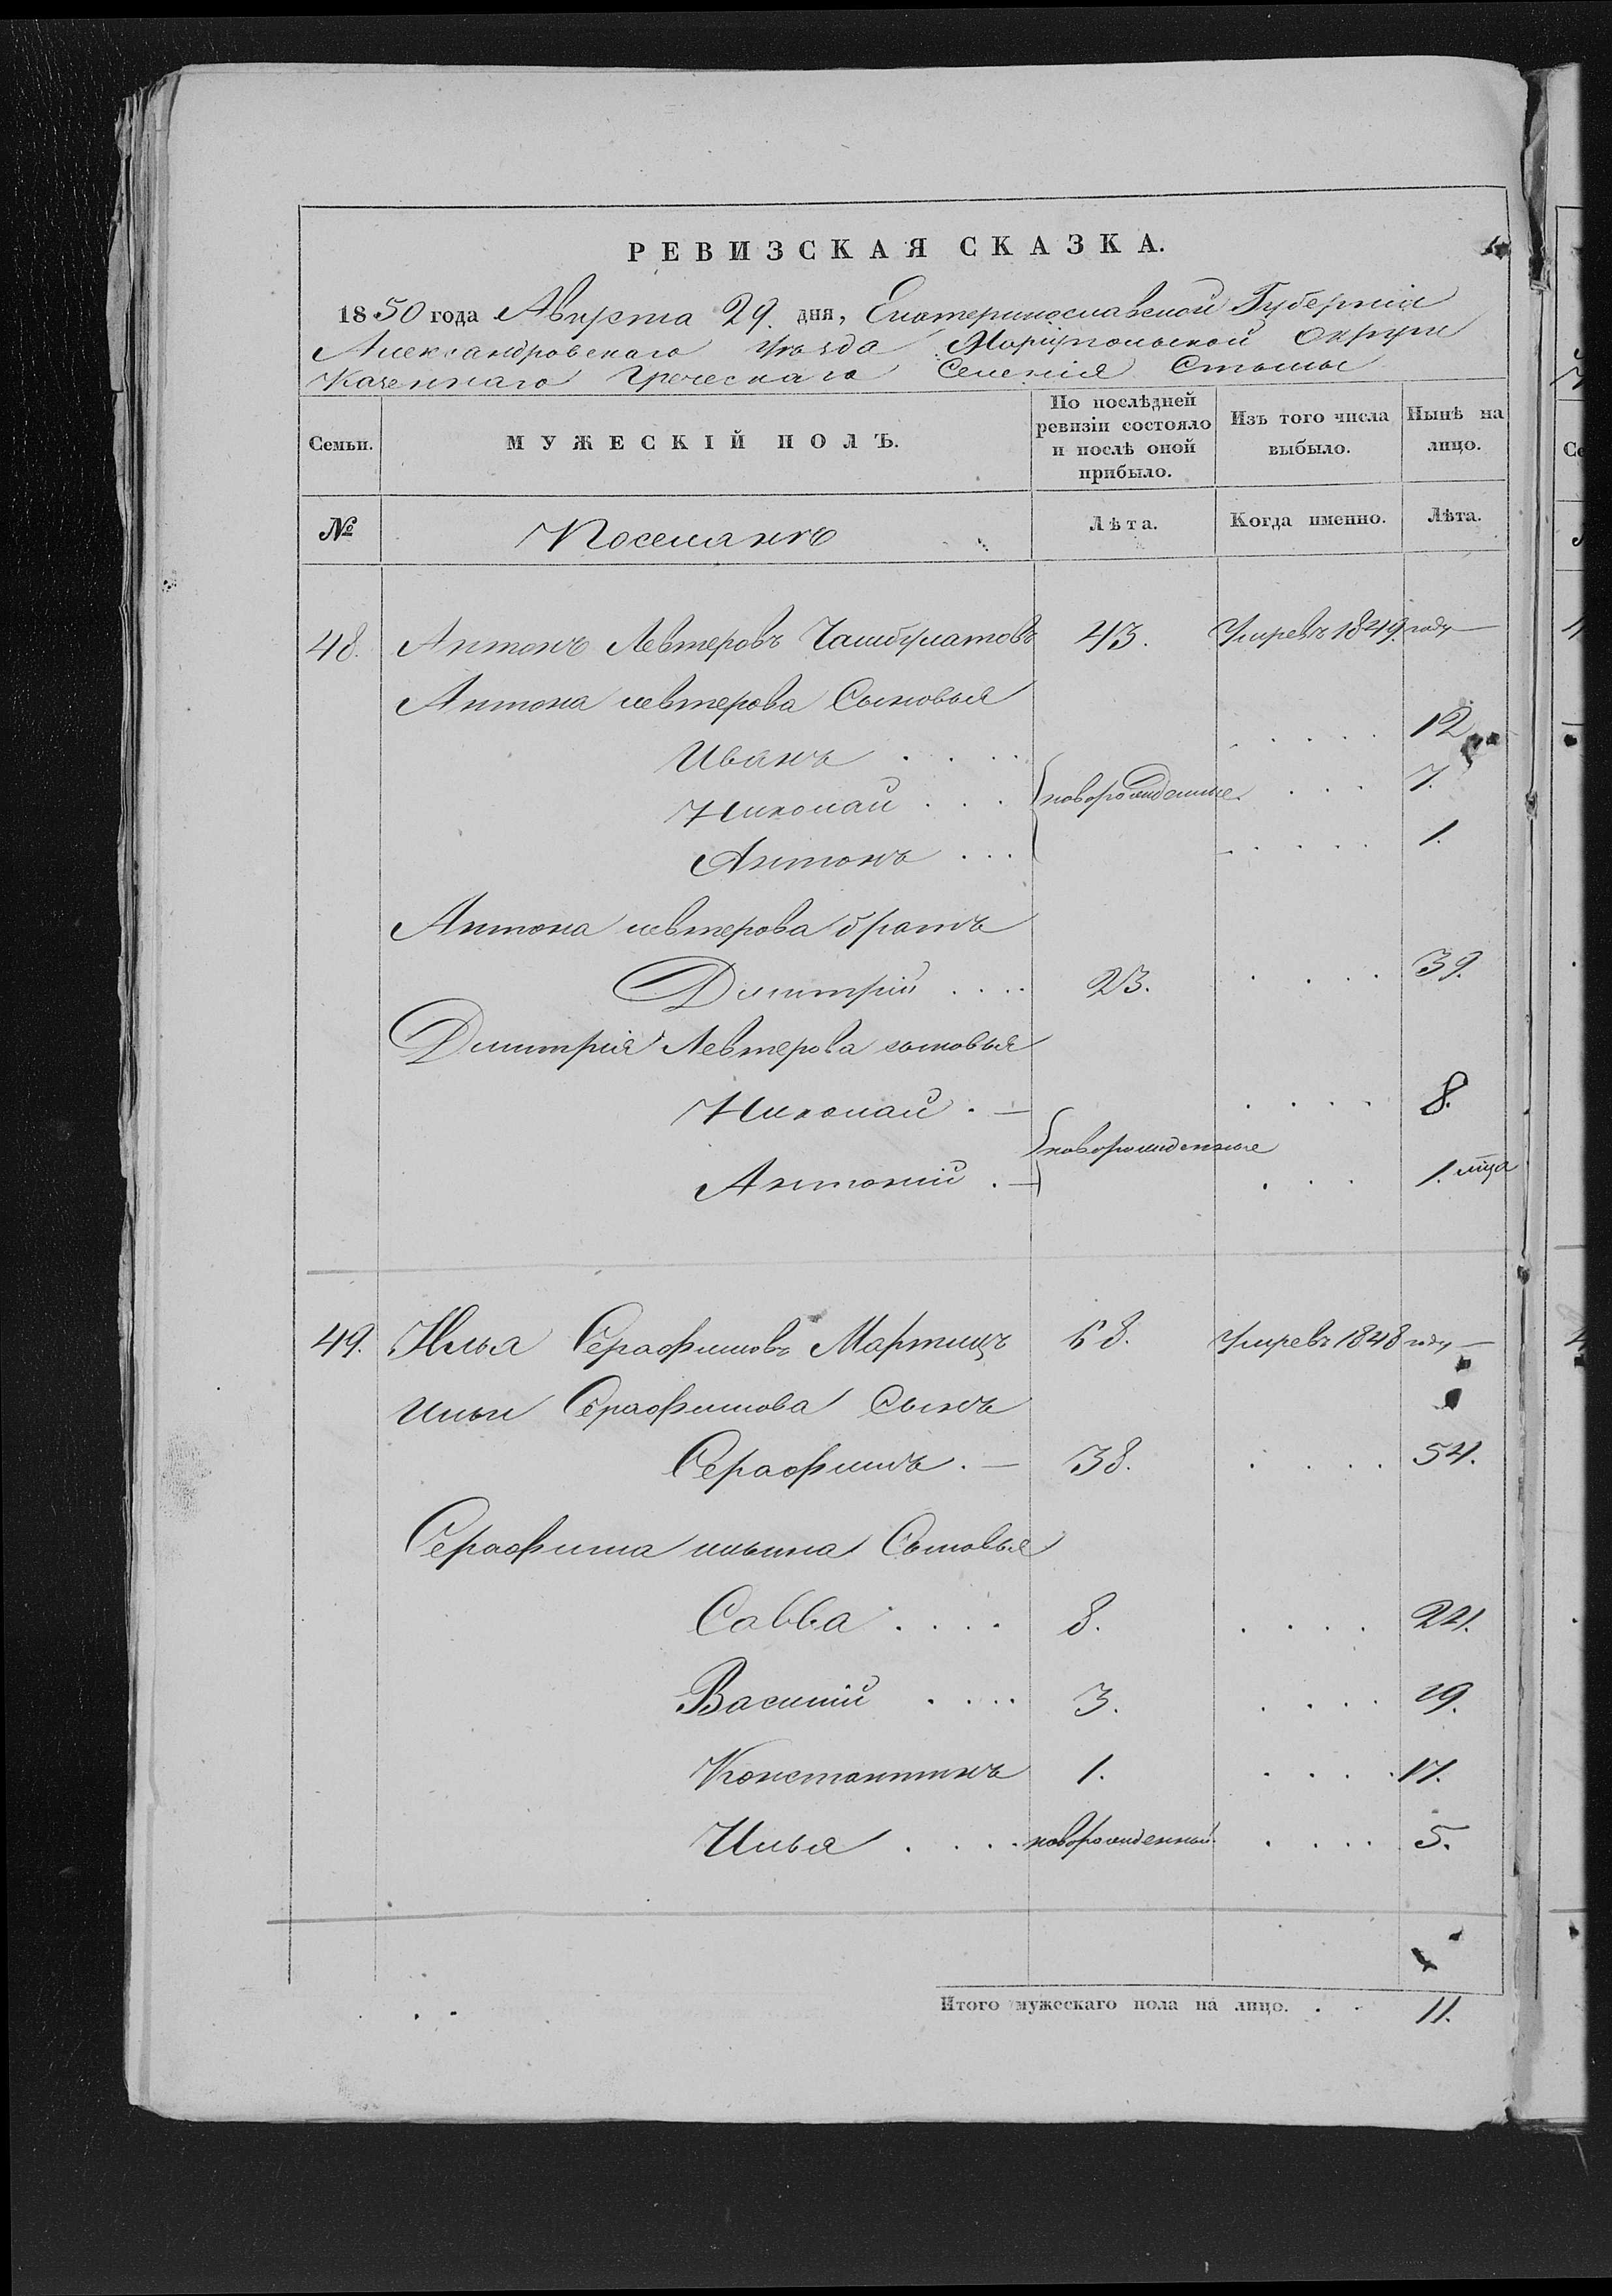 РЕВИЗСКАЯ СКАЗКА.
1850 года Августа 29. дня, Екатеринославской Губерніи
Александровскаго уѣзда Маріупольской Округи
Казеннаго Греческаго Селенія Стылы
Семьи. МУЖЕСКІЙ ПОЛЪ. По послѣдней ревизіи состояло и послѣ оной прибыло. Изъ того числа выбыло. Нынѣ на лицо.
№ Поселянъ Лѣта. Когда именно. Лѣта.
48. Антонъ Левтеровъ Чамбулатовъ 43. Умре въ 1849. году —
Антона левтерова Сыновья
Иванъ . . . . . . . . . 12
Николай . . . новорожденные . . . 7.
Антонъ . . . . . . . . 1.
Антона левтерова братъ
Дмитрій . . . . 23. . . . . 39.
Дмитрія Левтерова сыновья
Николай . — . . . . 8.
новорожденные
Антоній . — . . . 1. мца
49. Илья Серафимовъ Мартицъ 68. Умре въ 1848 году —
Ильи Серафимова Сынъ
Серафимъ . — 38. . . . . 54.
Серафима ильина Сыновья
Савва . . . . 8. . . . . 24.
Василій . . . . 3. . . . . 19.
Константинъ 1. . . . . 17.
Илья . . . . новорожденный . . . . 5.
Итого мужескаго пола на лицо. . . 11.